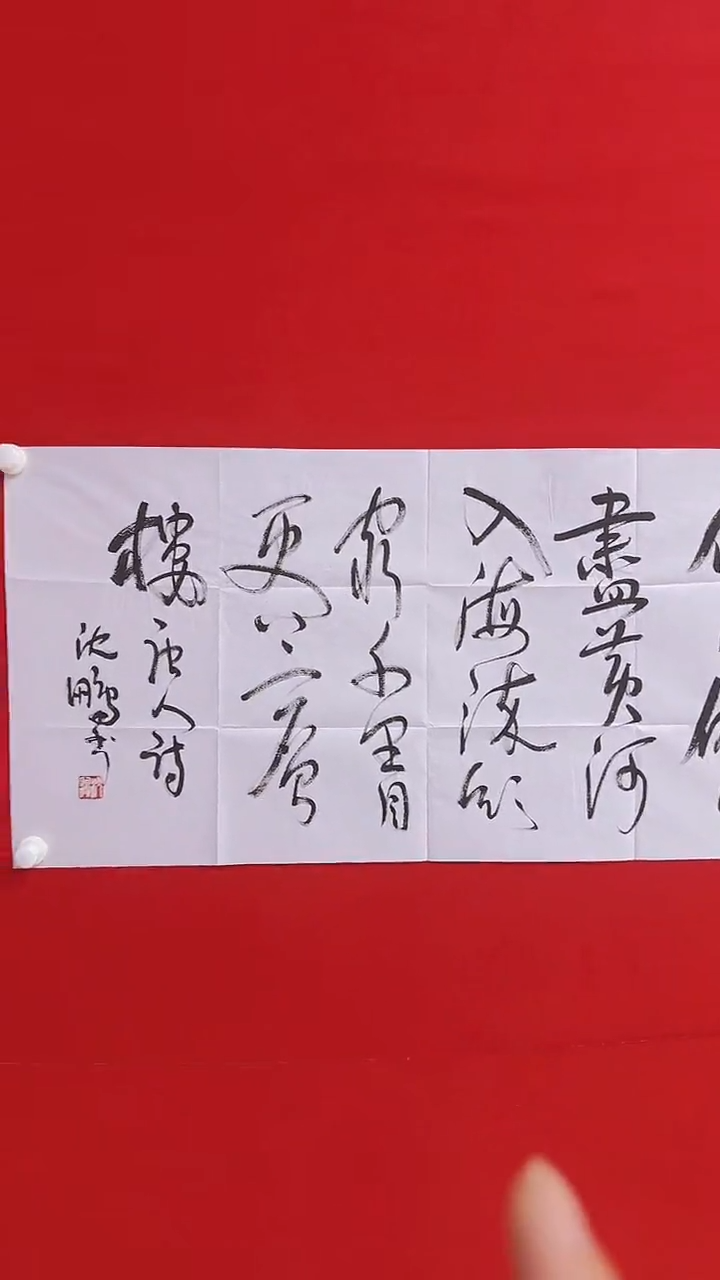 盡黄河
入海流欲
窮千里目
更上一層
樓唐人詩
沈鵬書